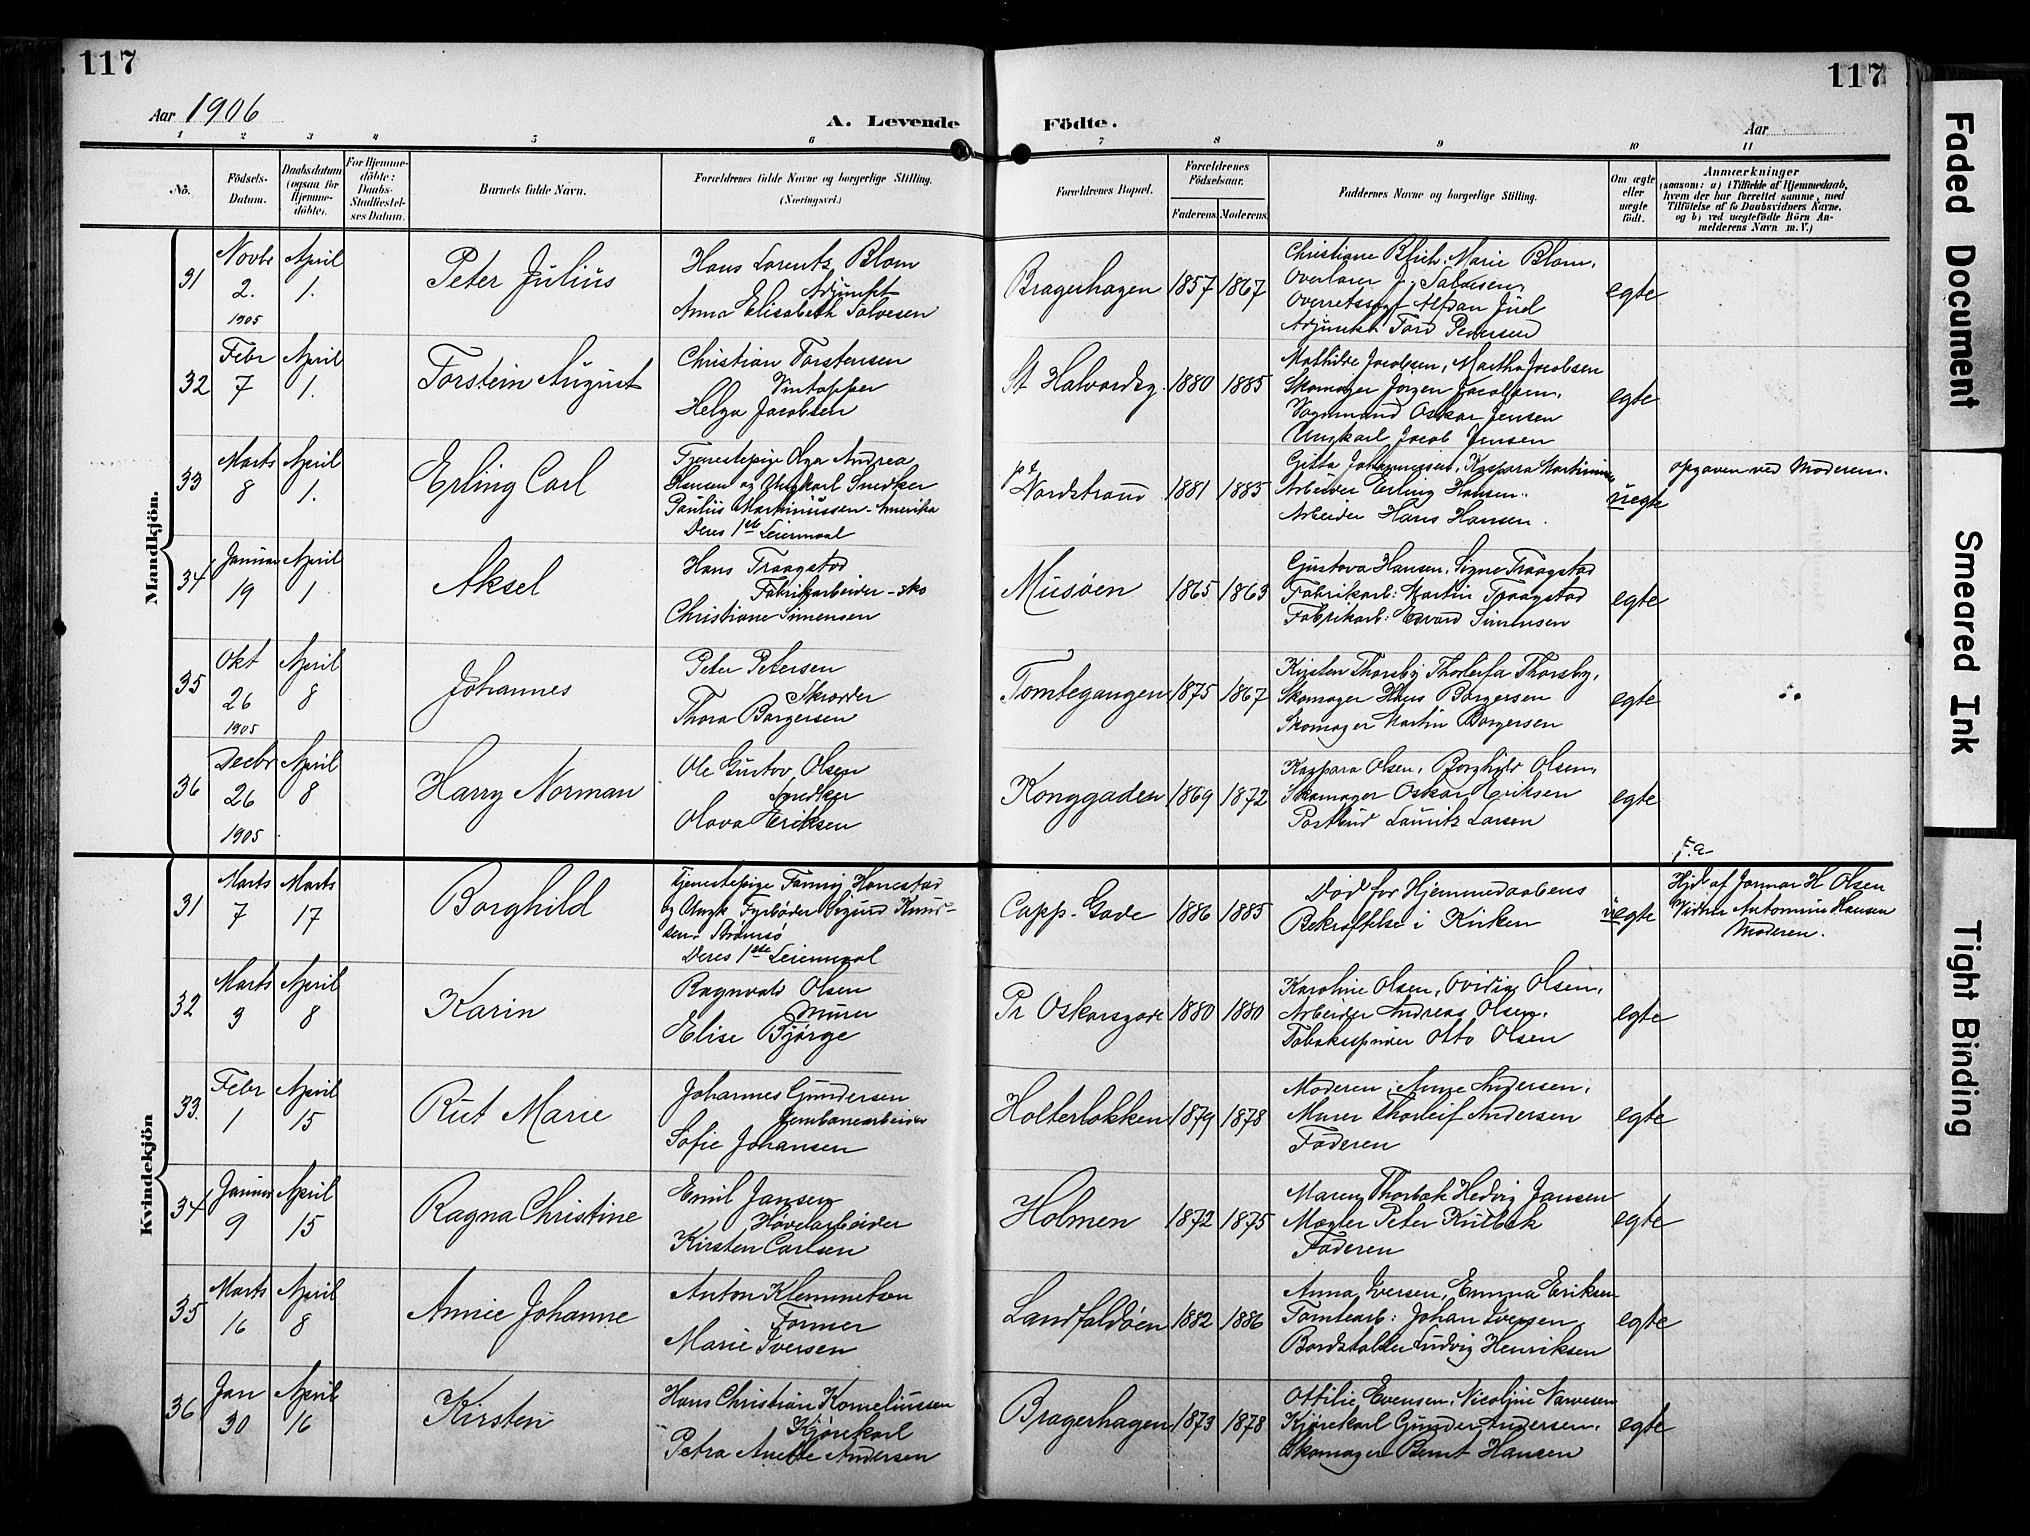 117
117
Aar 1906
A. Levende Födte.
Aar
1 2 3 4 5 6 7 8 9 10 11
No.
Födsels-
Datum.
Daabsdatum
(ogsaa for
Hjemme-
döbte).
For Hjemme-
döbte:
Daabs-
Stadfæstel-
ses Datum.
Barnets fulde Navn.
Forældrenes fulde Navne og borgerlige Stilling.
(Næringsvei.)
Forældrenes Bopæl.
Forældrenes
Födselsaar.
Faderens. Moderens.
Faddernes Navne og borgerlige Stilling.
Om ægte
eller
uægte
födt.
Anmærkninger
(saasom: a) i Tilfælde af Hjemmedaab,
hvem der har forrettet samme, med
Tilföielse af to Daabsvidners Navne,
og b) ved uægtefödte Börn An-
melderens Navn m. V.)
Mandkjön.
31
Novbr
2.
1905
April
1.
Peter Julius
Hans Lorentz Blom
Adjunkt
Anna Elisabeth Salvesen
Bragerhagen 1857 1867
Christiane Blich, Marie Blom,
Overlærer J. Salvesen,
Overretssagf. Alfdan Juel
Adjunkt Tord Pedersen
egte
32
Febr
7
April
1.
Torstein August
Christian Torstensen
Vintapper
Helga Jacobsen
St Halvordsg. 1880 1885
Mathilde Jacobsen, Martha Jacobsen
Skomager Jørgen Jacobsen,
Vognmand Oskar Jensen
Ungkarl Jacob Jensen
egte
33
Marts
8
April
1.
Erling Carl
Tjenestepige Olga Andrea
Hansen og Ungkarl Snedker
Paulus Martinussen - Amerika
Deres 1ste Leiermaal
pt
Nordstrand 1881 1883
Gitta Johannessen, Kaspara Martinusen
Arbeider Erling Hansen..
Arbeider Hans Hansen.
uegte
opgaven ved Moderen.
34
Januar
19
April
1
Aksel
Hans Traagstad
Fabrikarbeider - sko
Christiane Simensen
Musøen 1865 1863
Gustava Hansen, Signe Traagstad
Fabrikarb: Martin Traagstad
Fabrikarb: Edvard Simensen
egte
35
Okt
26
1905
April
8
Johannes
Peter Petersen
Skrædder
Thora Borgersen
Tomtegangen 1875 1867
Kirsten Thorsby Thorleifa Thorsby,
Skomager Hans Borgersen
Skomager Martin Borgersen
egte
36
Decbr
26
1905
April
8
Harry Norman
Ole Gustav Olsen
Snedker
Olava Eriksen
Konggaden 1869 1872
Kaspara Olsen, Borghild Olsen,
Skomager Oskar Eriksen
Postbud Lauritz Larsen
egte
Kvindekjön
31
Marts
7
Marts
17
Borghild
Tjenestepige Fanny Hanestad
og Ungk. Fyrbøder Sigurd Knud-
sen. Strømsø
Deres 1ste Leiermaal
Capp. Gade 1886 1885
Død før Hjemmedaabens
Bekræftelse i Kirken
uegte
F. a
Hjd. af Jonmor H Olsen
Vidner Antomine Hansen
Moderen.
32
Marts
3
April
8
Karin
Ragnvald Olsen
Murer
Elise Bjørge
Pr Oskarsgade 1880 1880
Karoline Olsen, Ovidia Olsen,
Arbeider Andreas Olsen.
Tobakspinder Otto Olsen
egte
33.
Febr
1
April
15
Rut Marie
Johannes Gundersen
Jernbanearbeider
Sofie Johansen
Holterløkken 1879 1878
Moderen, Anne Andersen,
Murer Thorleif Andersen
Faderen
egte
34
Januar
9
April
15
Ragna Christine
Emil Jansen
Høvelarbeider
Kirsten Carlsen
Holmen 1872 1875
Maren Thorbæk Hedvig Jansen
Mægler Peter Kulbæk
Faderen
egte
35
Marts
16
April
8
Annie Johanne
Anton Klemmetsen
Former
Marie Iversen
Landfaldøen 1882 1886
Anna Iversen, Emma Eriksen
Tomtearb: Johan Iversen,
Bordstabler Ludvig Henriksen
egte
36
Jan
30
April
16
Kirsten
Hans Christian Korneliussen
Kjørekarl
Petra Anette Andersen
Bragerhagen 1873 1878
Ottilie Evensen, Nicoline Narvesen
Kjørekarl Gunder Andersen.
Skomager Bernt Hansen
egte
Faded Document
Smeared Ink
Tight Binding